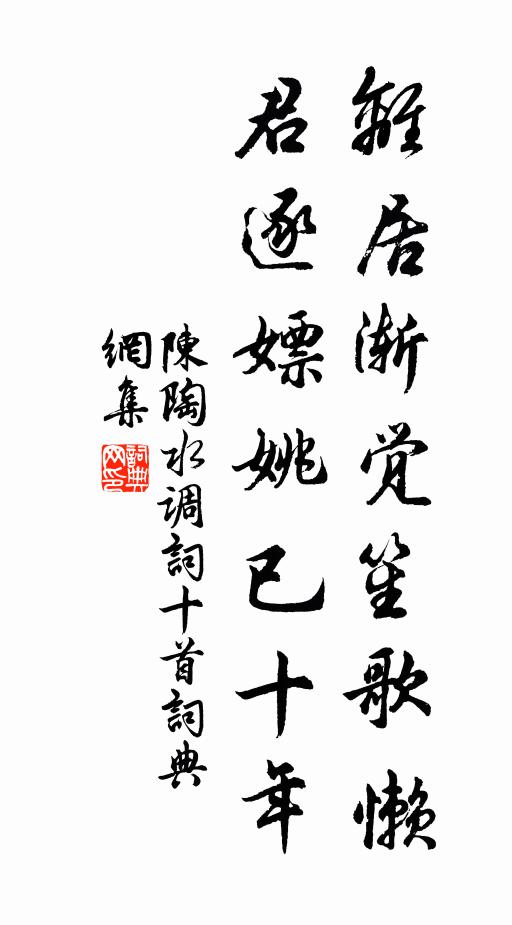 離居渐觉笙歌懒
君逐嫖姚已十年
陳陶水调詞十首詞典
網集
詞典网印